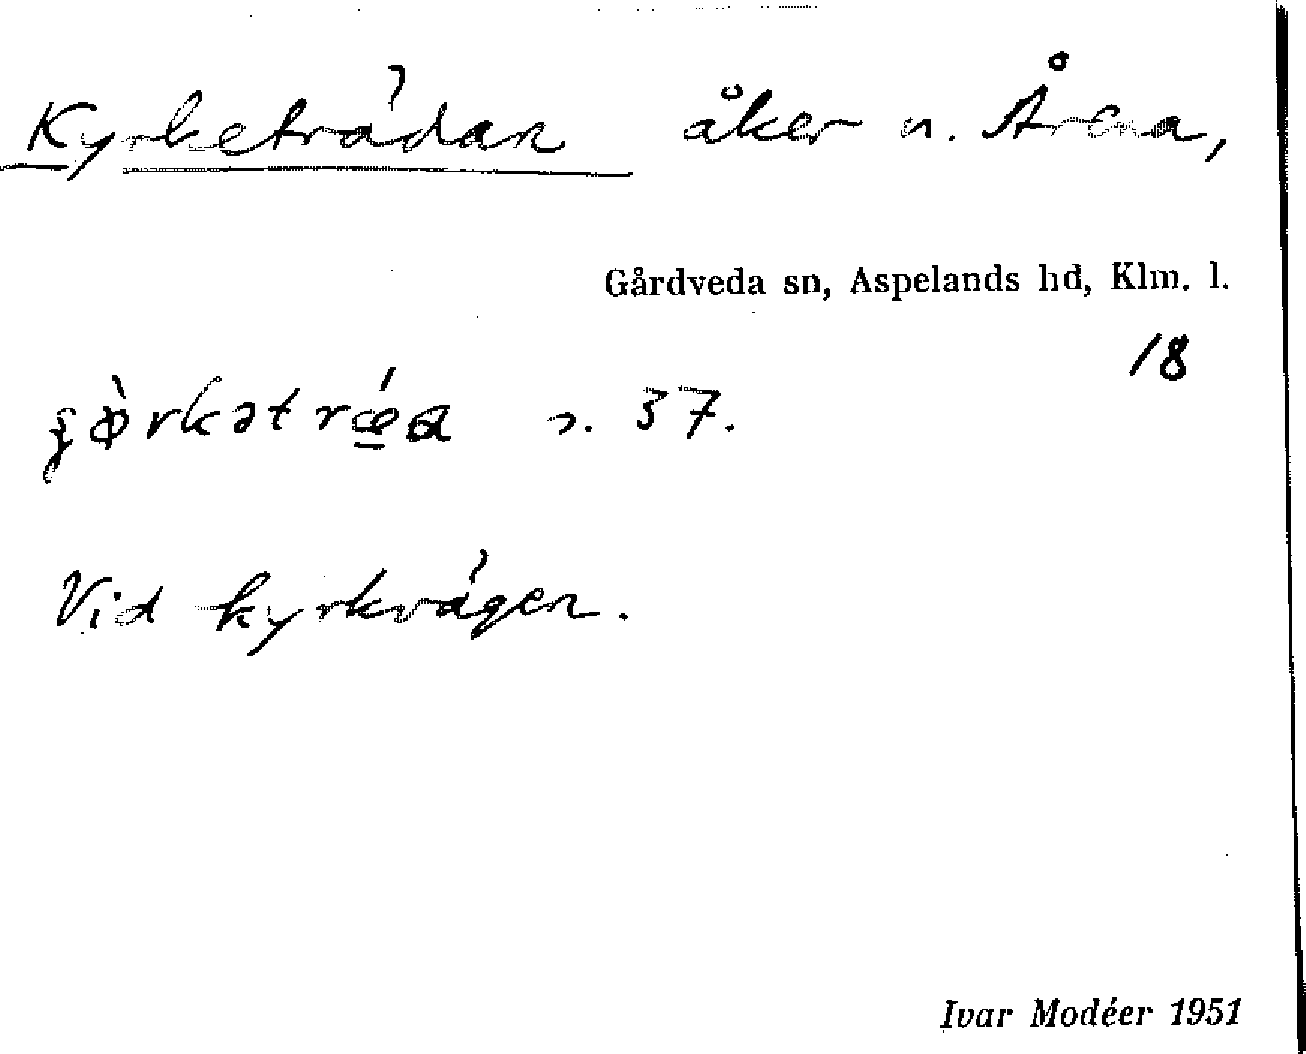 Kyrketrädan åker n. Årena,
Gårdveda sn, Aspelands hd, Klm. l.
18
n. 37.
Vid kyrkvägen.
Ivar Modéer 1951